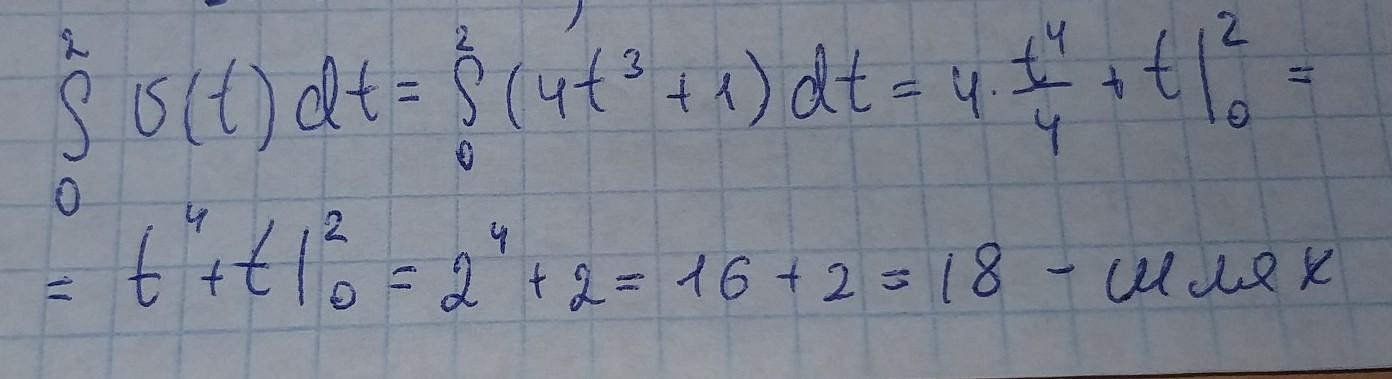 ∫₀² v(t) dt = ∫₀² (4t³ + 1) dt = 4 · t⁴/4 + t |₀² =
= t⁴ + t |₀² = 2⁴ + 2 = 16 + 2 = 18 - шлях